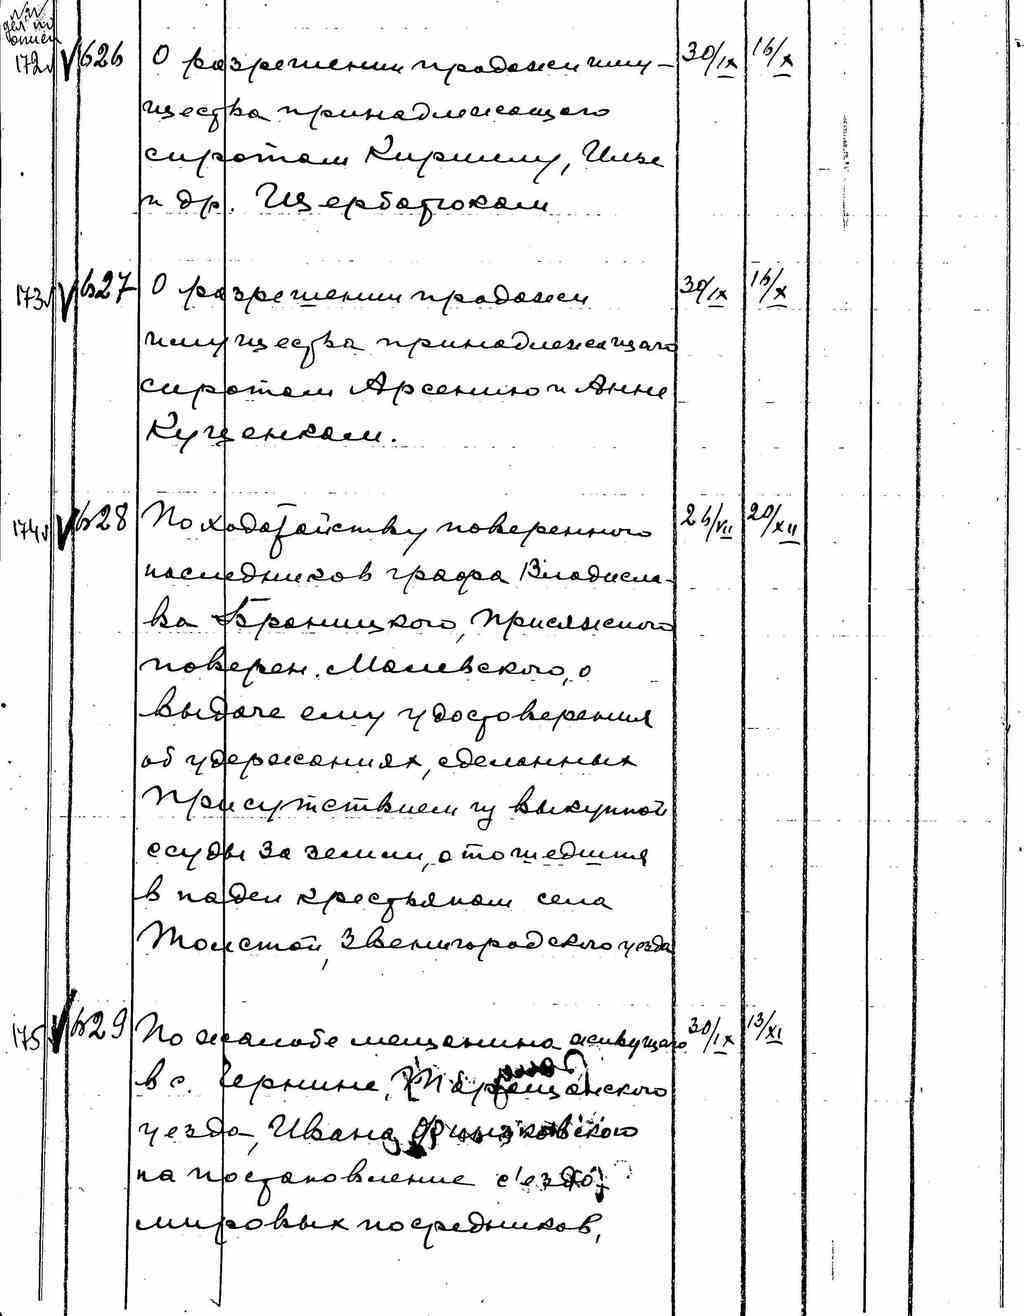 №№
дел по
описи
172 626 О разрешении продажи иму- 30/IX 16/X
щества принадлежащаго
сиротам Кириллу, Илье
и др. Щербатюкам
173 627 О разрешении продажи 30/IX 16/X
имущества принадлежащаго
сиротам Арсению и Анне
Кущенкам.
174 628 По ходатайству поверенного 26/VII 20/XII
наследников графа Владисла-
ва Браницкого, присяжного
поверен. Малевского, о
выдаче ему удостоверения
об удержаниях, сделанных
Присутствием из выкупной
ссуды за земли, отошедшия
в надел крестьянам села
Толстой, Звенигородского уезда
175 629 По жалобе мещанина живущего 30/IX 13/XI
в с. Чернине, Таращанского
уезда, Ивана
на постановление с'езда
мировых посредников,